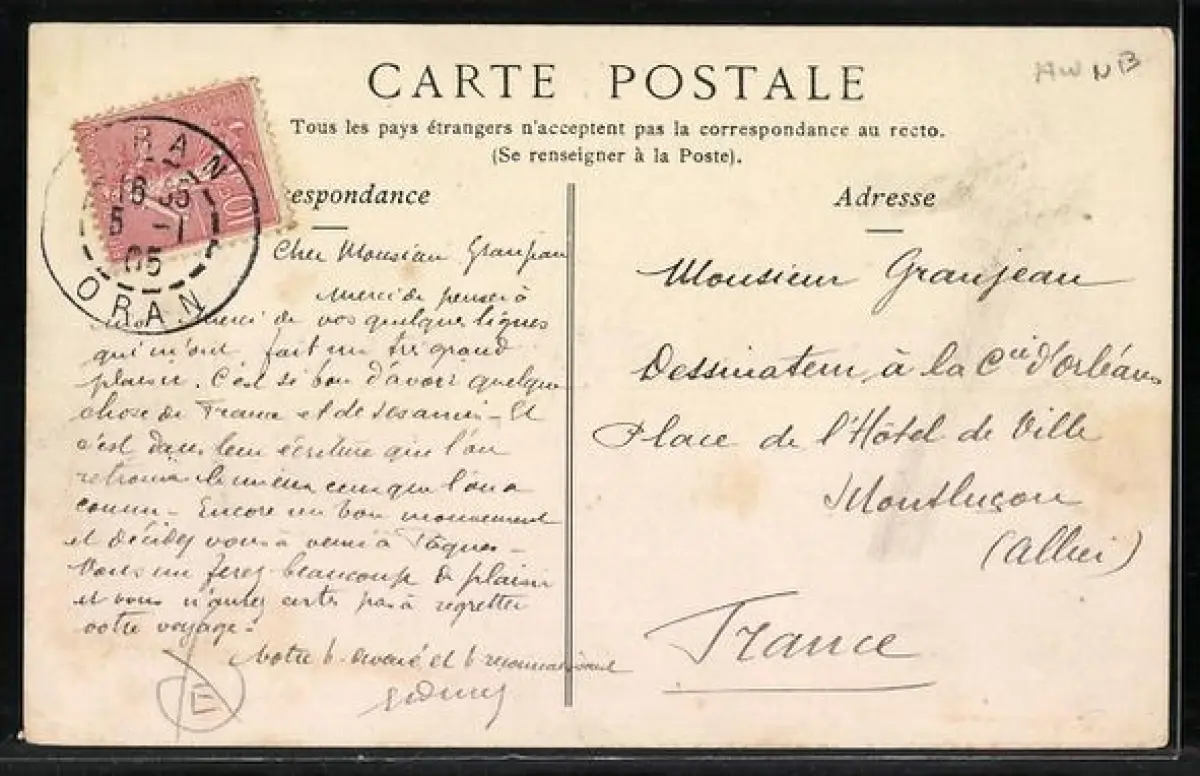 CARTE POSTALE
Tous les pays étrangers n'acceptent pas la correspondance au recto.
(Se renseigner à la Poste).
espondance
Adresse
ORAN
16 35
5 -1
05
ORAN
10
Cher Monsieur Granjean
Merci de penser à
merci de vos quelques lignes
qui m'ont fait un très grand
plaisir. C'est si bon d'avoir quelque
chose de France et de ses amis - Et
c'est dans leur écriture que l'on
retrouve le mieux ceux que l'on a
connu - Encore un bon mouvement
et décidez vous à venir à Pâques -
Vous me ferez beaucoup de plaisir
et vous n'aurez certes pas à regretter
votre voyage.
Votre b. dévoué et b reconnaissant
E
Monsieur Granjean
Dessinateur à la Cie d'Orléans
Place de l'Hôtel de Ville
Montluçon
(Allier)
France